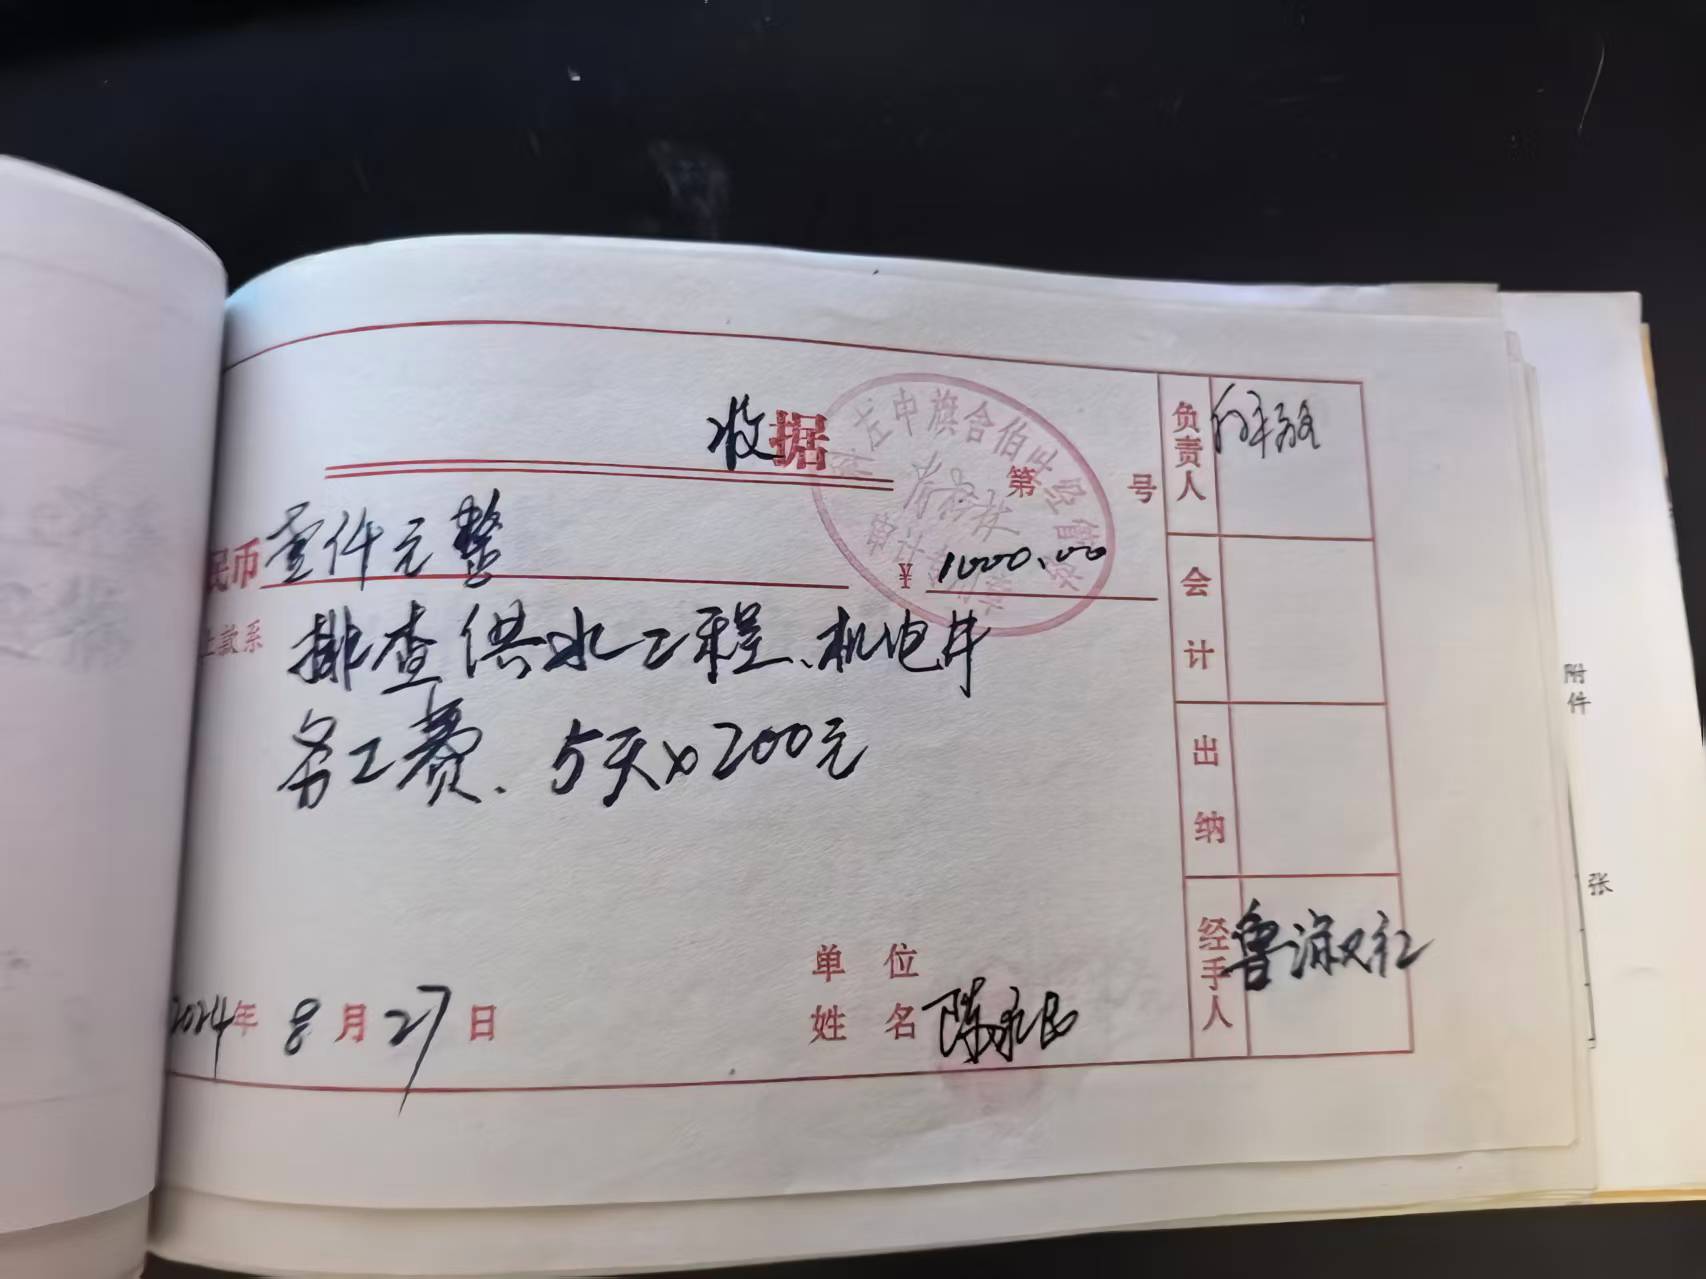 收据
第 号
民币壹仟元整 ¥1000.00
款系 排查供水工程、机电井
务工费、5天×200元
2024年8月27日
单位
姓名 陈永民
负责人
会计
出纳
经手人 鲁淑红
左中旗合伯
审计
附件
张